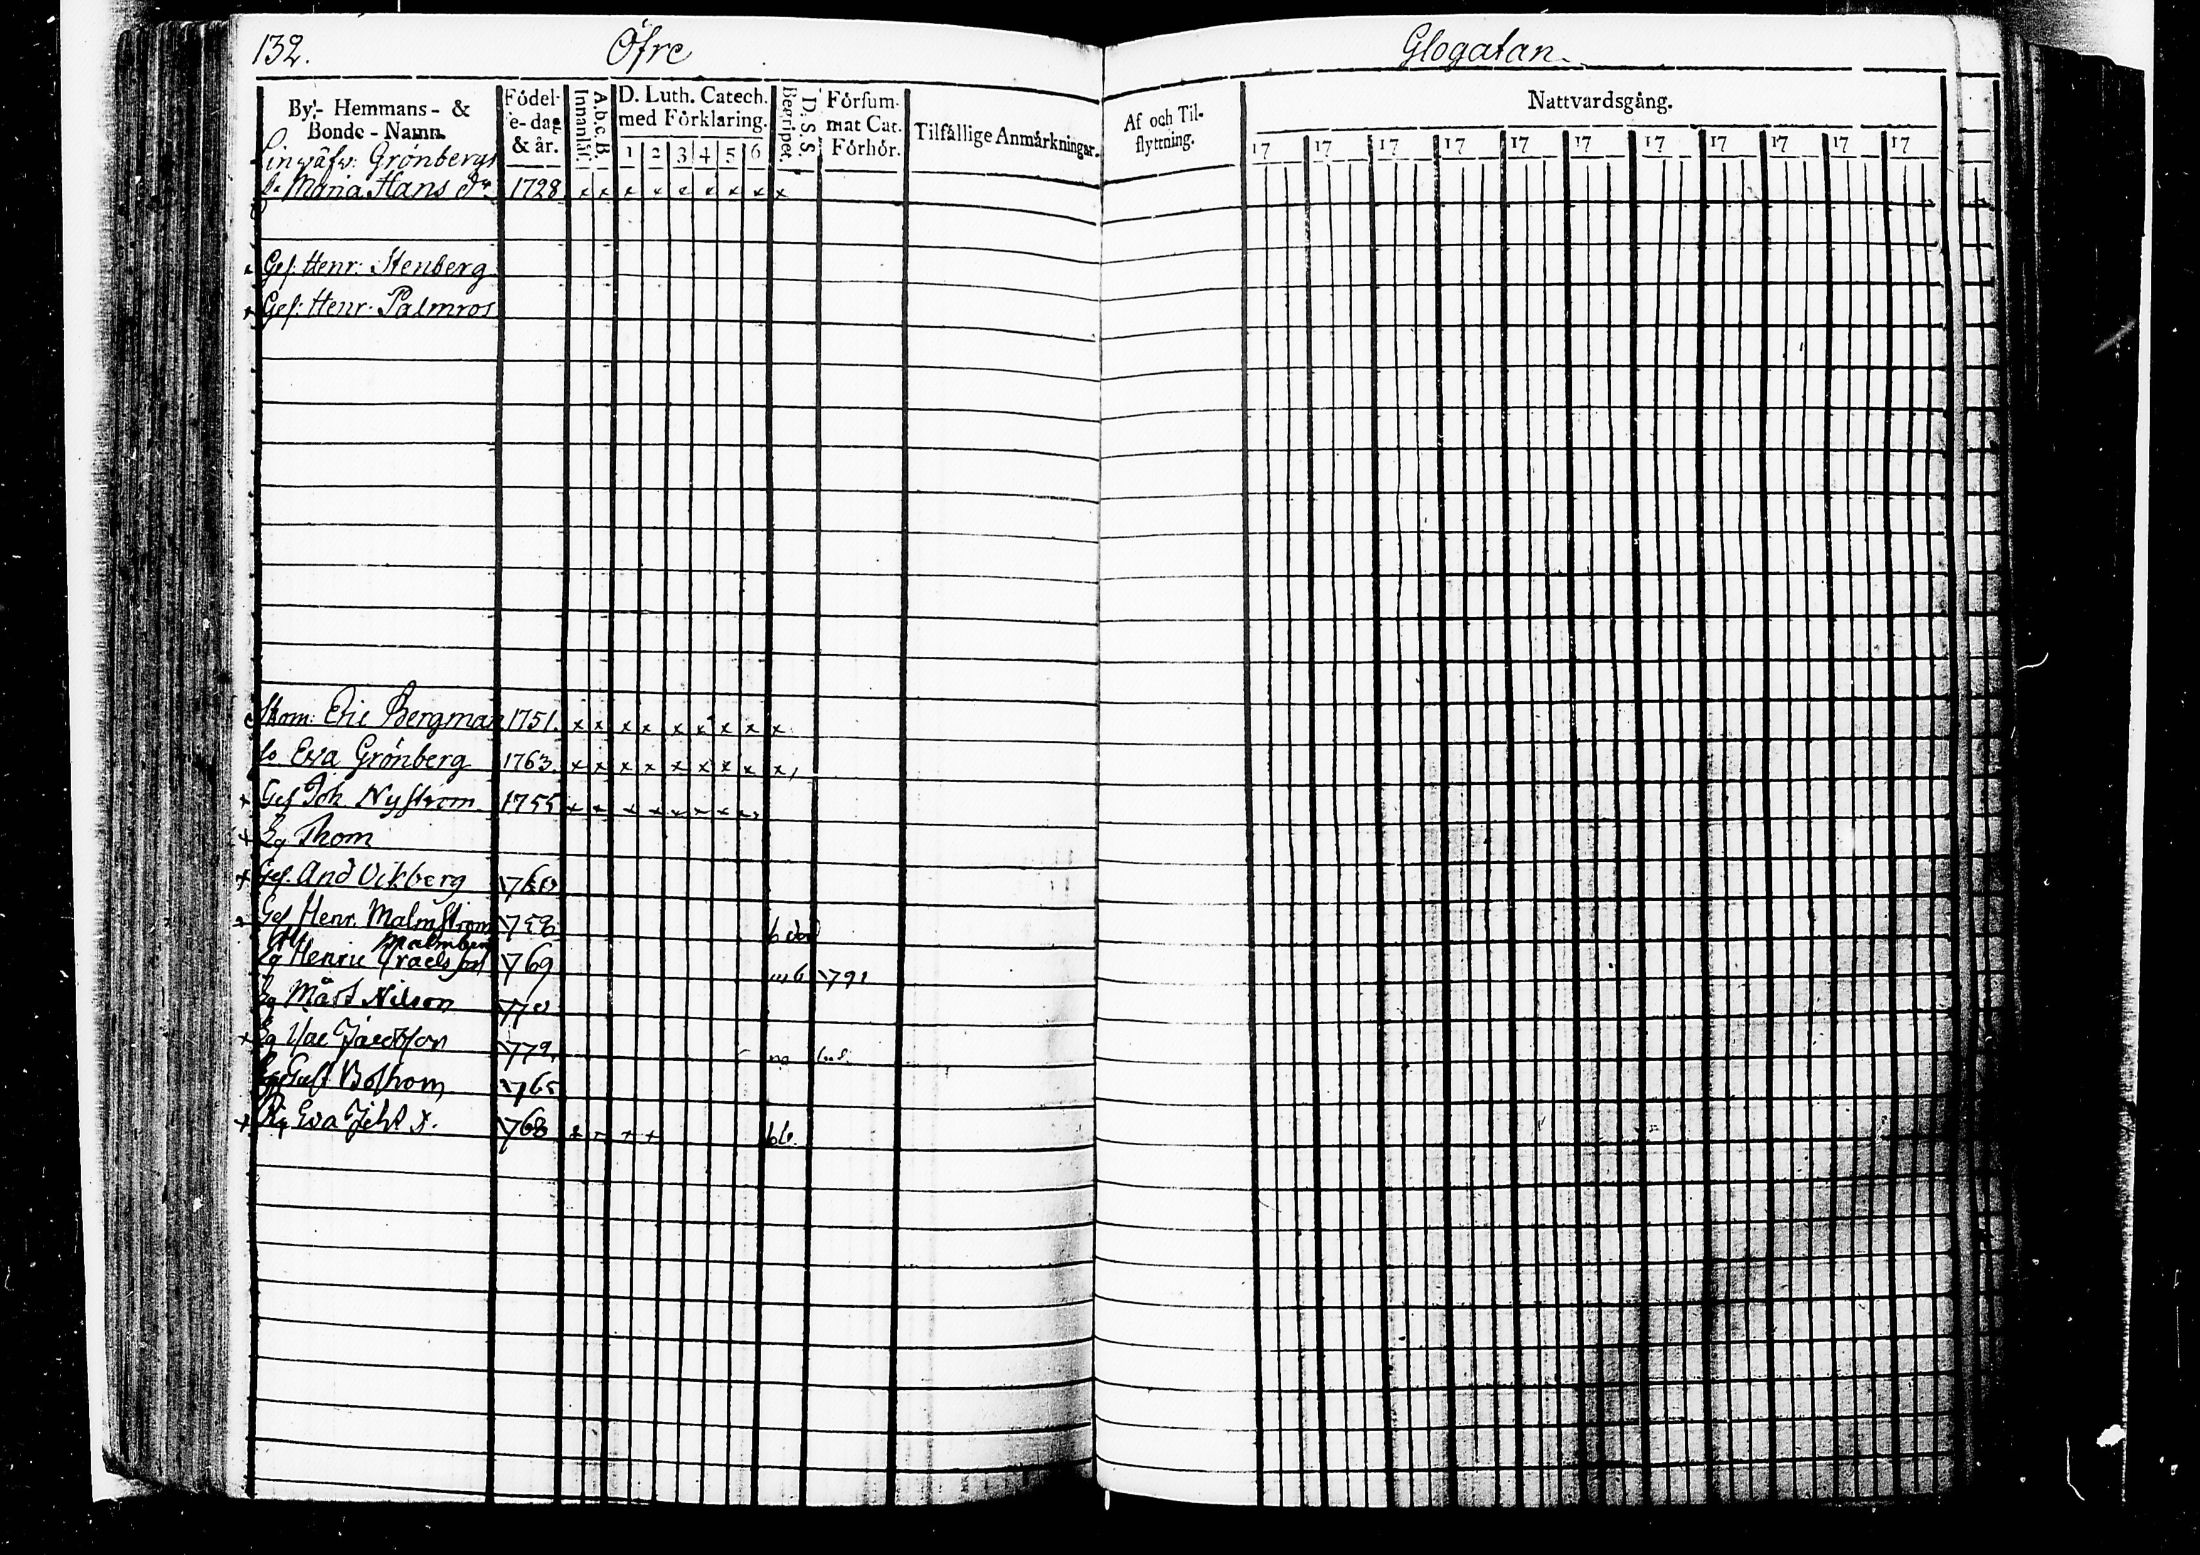 132. Öfre Glogatan
By- Hemmans- &
Bonde-Namn.
Födel-
e-dag
& år.
Innanläs.
A.b.c.B.
D. Luth. Catech.
med Förklaring.
1 2 3 4 5 6
Begripet.
D. S. S.
Försum-
mat Cat.
Förhör.
Tilfällige Anmärkningar.
Af och Til-
flyttning.
Nattvardsgång.
17 17 17 17 17 17 17 17 17 17 17
Linwäfv: Grönbergs
Maria Hans 1728 x x x x x x x x x
Ges: Henr: Stenberg
Ges: Henr: Palmros
Eric Bergman 1751. x x x x x x x x x
Eva Grönberg 1763. x x x x x x x x x
Ges Joh Nyström 1755 x x x x x x x x
Lg Thom
Ges. And Vikberg 1760
Ges Henr. Malmström
Malmberg
Lg Henric 1769 1791
Lg Mårt Nilson
Lg Jacobson 1779
Gust Boström 1765
Pig Eva 1768 x - + +